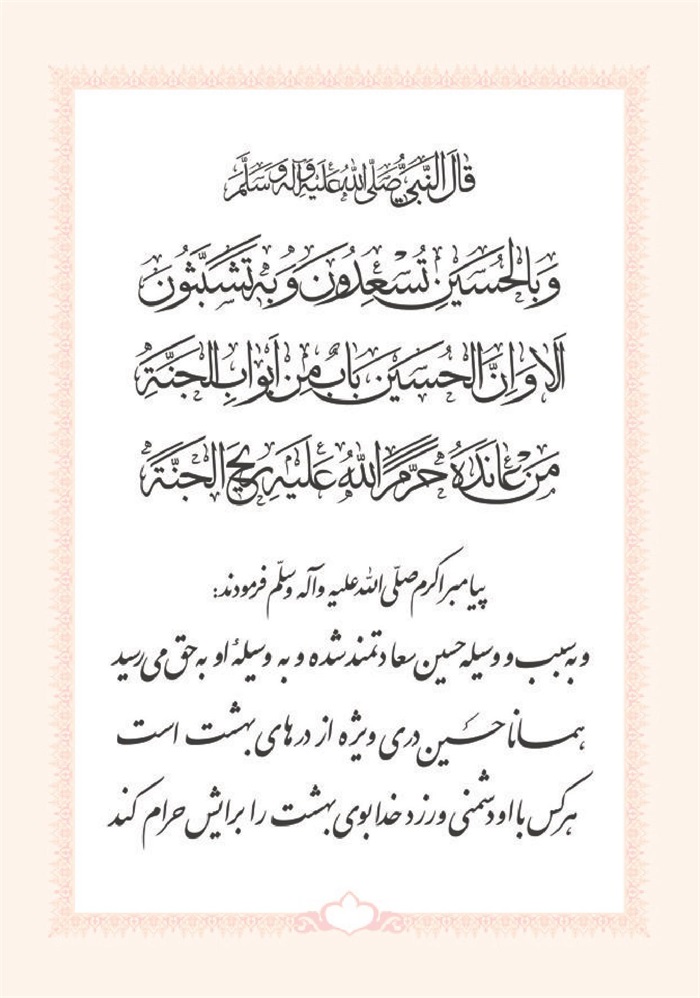 قالَ النَّبِيُّ صَلَّی اللهُ عَلَیْهِ وَآلِهِ وَسَلَّمَ
وَبِالْحُسَیْنِ تُسْعِدُونَ وَبِهِ تَشَبَّثُونَ
اَلا وَاِنَّ الْحُسَیْنَ بَابٌ مِنْ اَبْوابِ الْجَنَّةِ
مَنْ عانَدَهُ حَرَّمَ اللهُ عَلَیْهِ رِیحَ الْجَنَّةِ
پیامبر اکرم صلّی الله علیه وآله وسلّم فرمودند:
و به سبب و وسیله حسین سعادتمند شده و به وسیلۀ او به حق می رسید
همانا حسین دری ویژه از درهای بهشت است
هر کس با او دشمنی ورزد خدا بوی بهشت را برایش حرام کند